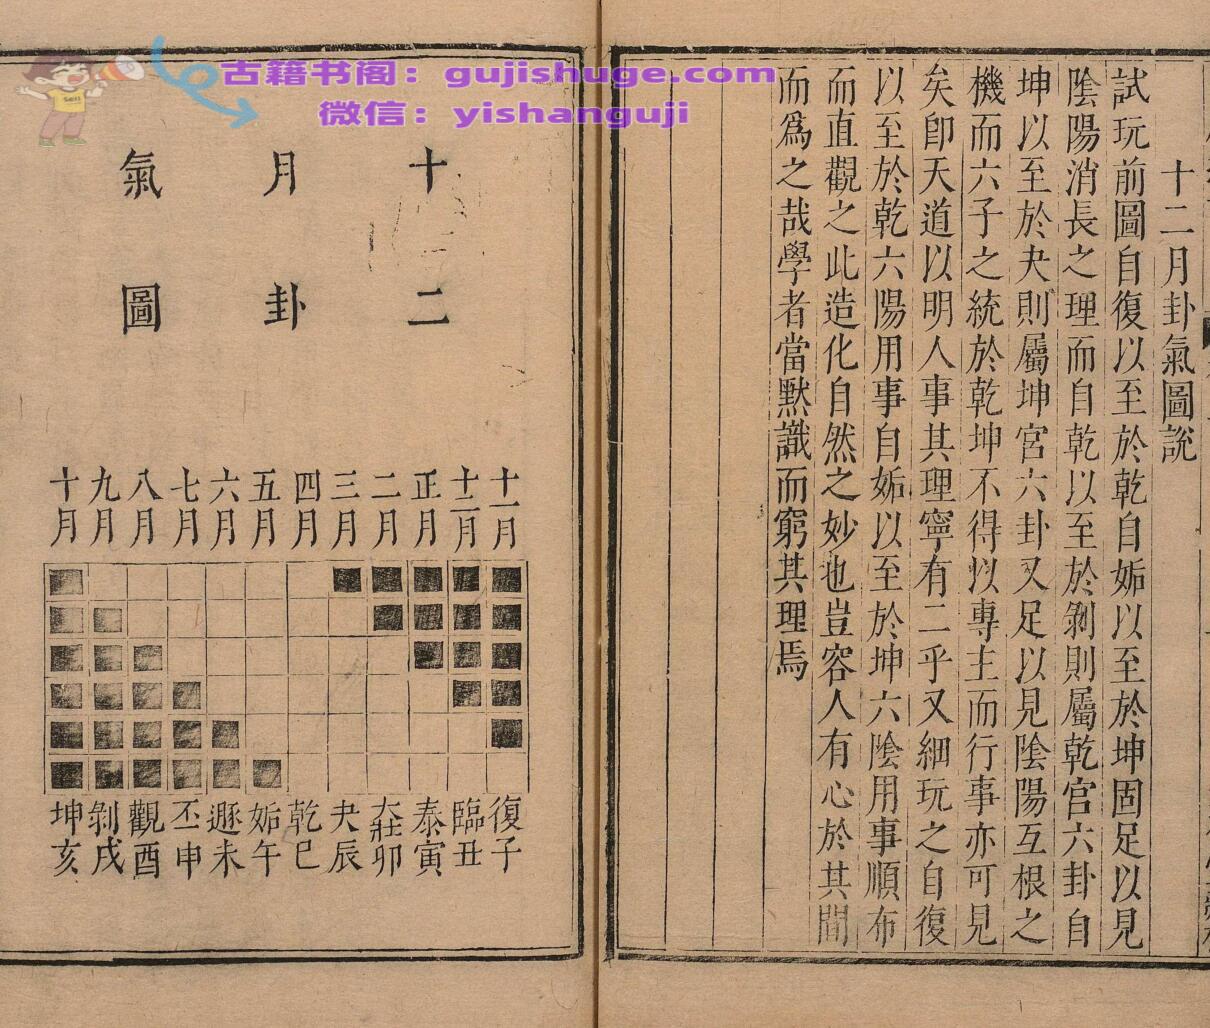 古籍书阁：gujishuge.com
微信：yishanguji
十二月卦氣圖說
試玩前圖自復以至於乾自姤以至於坤固足以見
陰陽消長之理而自乾以至於剝則屬乾宮六卦自
坤以至於夬則屬坤宮六卦又足以見陰陽互根之
機而六子之統於乾坤不得以專主而行事亦可見
矣卽天道以明人事其理寧有二乎又細玩之自復
以至於乾六陽用事自姤以至於坤六陰用事順布
而直觀之此造化自然之妙也豈容人有心於其間
而爲之哉學者當默識而窮其理焉
十二
月卦
氣圖
十一月 十二月 正月 二月 三月 四月 五月 六月 七月 八月 九月 十月
復子 臨丑 泰寅 大壯卯 夬辰 乾巳 姤午 遯未 丕申 觀酉 剝戌 坤亥